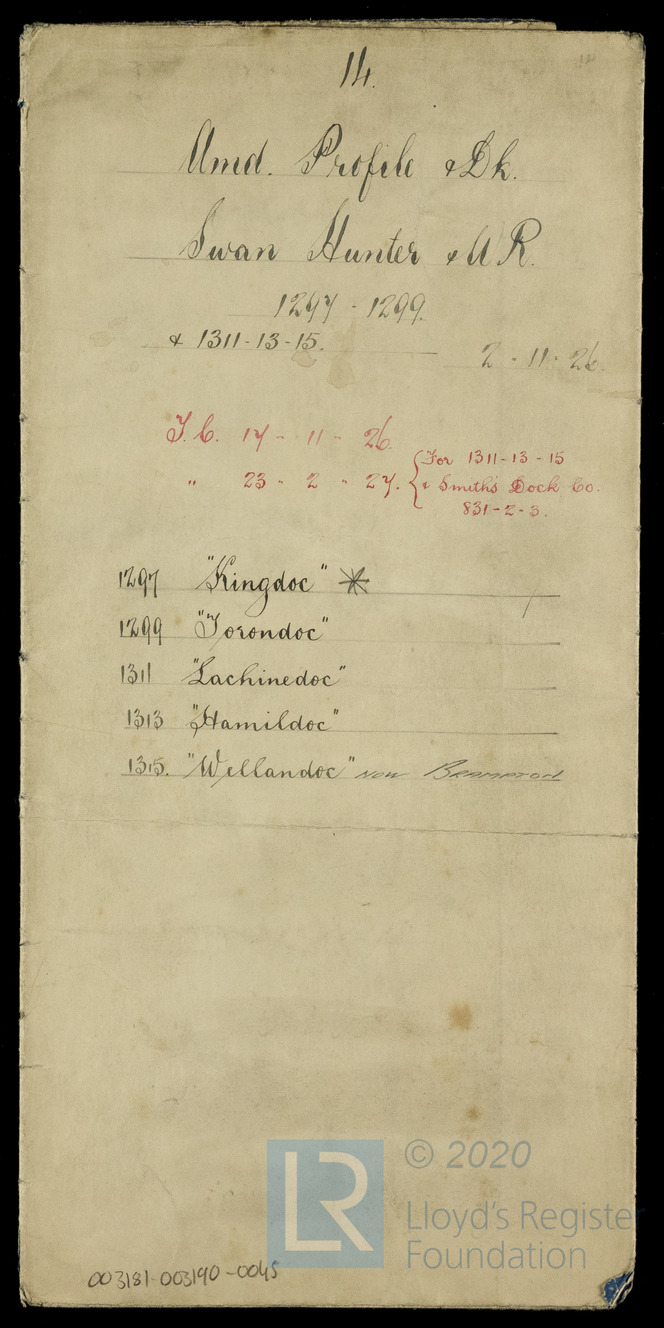 14.
Amd. Profile & Dk.
Swan Hunter & W R.
1297 - 1299.
& 1311-13-15.
2 - 11 - 26.
T.C. 17 - 11 - 26.
" 23 - 2 - 27. { For 1311-13-15
& Smith's Dock Co.
831-2-3.
1297 "Kingdoc" *
1299 "Torondoc"
1311 "Lachinedoc"
1313 "Hamildoc"
1315. "Wellandoc" now BRAMPTON
© 2020
LR
Lloyd's Register
Foundation
003181-003190-0045